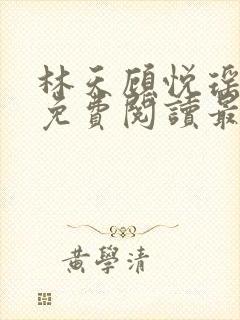 林天顧悅瑶
免費閱讀最
黃學清